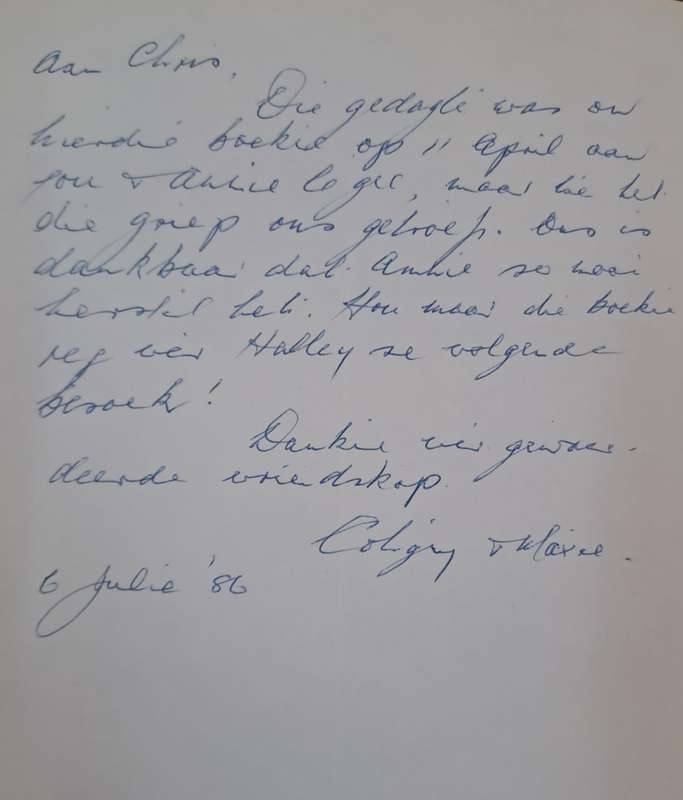 Aan Chris,
Die gedagte was om
hierdie boekie op 11 April aan
jou & Annie te gee, maar toe het
die griep ons getref. Ons is
dankbaar dat Annie so mooi
herstel het. Hou maar die boekie
reg vir Halley se volgende
besoek!
Dankie vir gewaar-
deerde vriendskap.
Coligny &
6 Julie '86